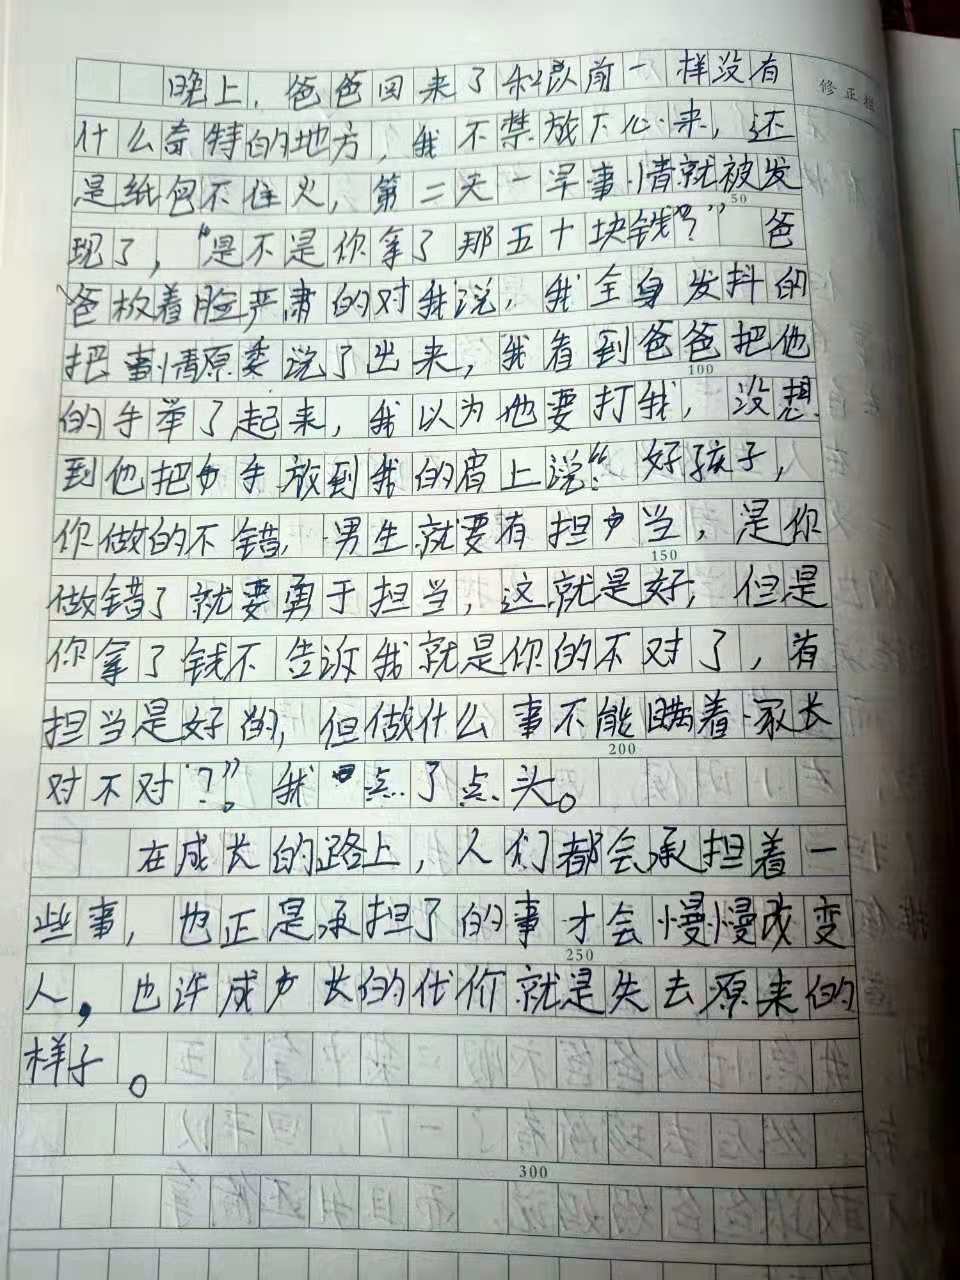 晚上，爸爸回来了和以前一样没有
修正栏
什么奇特的地方，我不禁放下心来，还
是纸包不住火，第二天一早事情就被发
50
现了，“是不是你拿了那五十块钱？”爸
爸板着脸严肃的对我说，我全身发抖的
把事情原委说了出来，我看到爸爸把他
100
的手举了起来，我以为他要打我，没想
到他把手放到我的肩上说：“好孩子，
你做的不错，男生就要有担当，是你
150
做错了就要勇于担当，这就是好，但是
你拿了钱不告诉我就是你的不对了，有
担当是好的，但做什么事不能瞒着家长
200
对不对？”。我点了点头。
在成长的路上，人们都会承担着一
些事，也正是承担了的事才会慢慢改变
250
人，也许成长的代价就是失去原来的
样子。
300